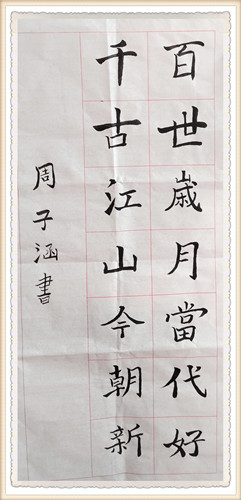 百世歲月當代好
千古江山今朝新
周子涵書